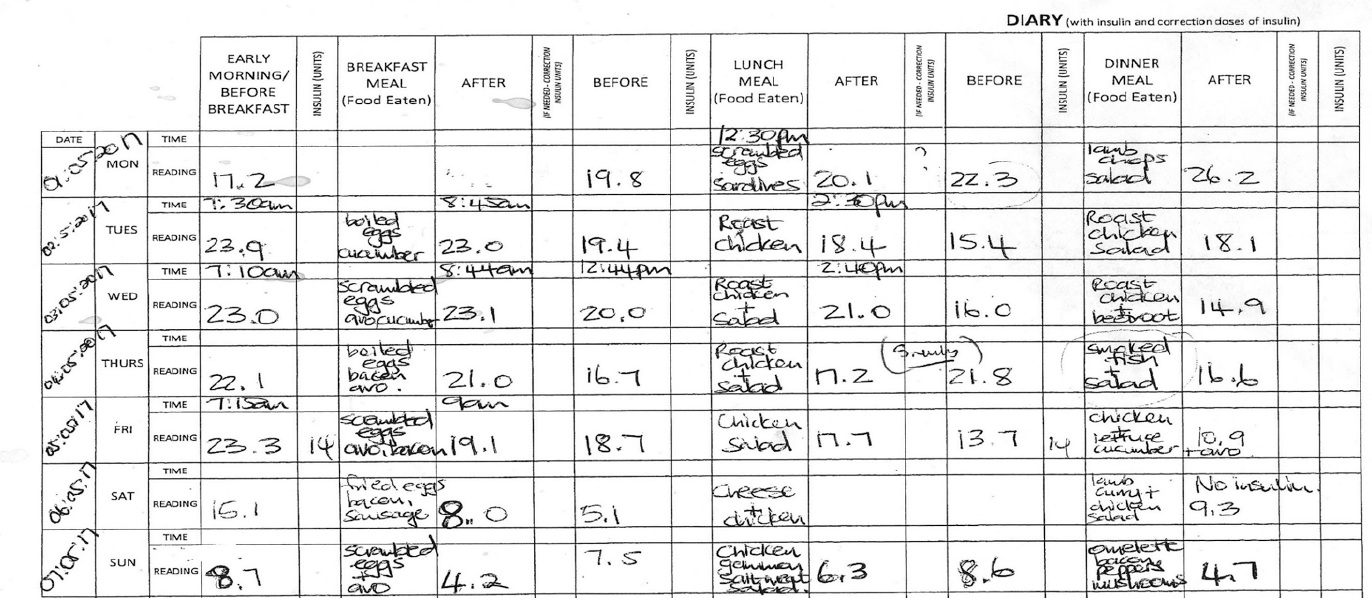 DIARY (with insulin and correction doses of insulin)
EARLY MORNING/ BEFORE BREAKFAST INSULIN (UNITS) BREAKFAST MEAL (Food Eaten) AFTER (IF NEEDED - CORRECTION INSULIN UNITS) BEFORE INSULIN (UNITS) LUNCH MEAL (Food Eaten) AFTER (IF NEEDED - CORRECTION INSULIN UNITS) BEFORE INSULIN (UNITS) DINNER MEAL (Food Eaten) AFTER (IF NEEDED - CORRECTION INSULIN UNITS) INSULIN (UNITS)
DATE TIME 12:30pm
01.05.2017 MON READING 17.2 19.8 scrambled eggs sardines 20.1 ? 22.3 lamb chops salad 26.2
TIME 7:30am 8:45am 2:30pm
02.5.2017 TUES READING 23.9 boiled eggs cucumber 23.0 19.4 Roast chicken 18.4 15.4 Roast chicken Salad 18.1
TIME 7:10am 8:44am 12:44pm 2:40pm
03.05.2017 WED READING 23.0 scrambled eggs avo cucumber 23.1 20.0 Roast chicken + salad 21.0 16.0 Roast chicken + beetroot 14.9
TIME
04.05.2017 THURS READING 22.1 boiled eggs bacon avo. 21.0 16.7 Roast chicken + salad 17.2 21.8 smoked fish + salad 16.6
TIME 7:15am 9am
FRI READING 23.3 14 scrambled eggs avo, bacon 19.1 18.7 Chicken Salad 17.7 13.7 14 chicken lettuce cucumber + avo 10.9
TIME
06.05.17 SAT READING fried eggs bacon, sausage 8.0 5.1 Cheese + chicken lamb curry + chicken salad No insulin. 9.3
TIME
07.05.17 SUN READING 8.7 scrambled eggs + avo 4.2 7.5 Chicken gammon salad. 6.3 8.6 omelette bacon peppers mushrooms 4.7